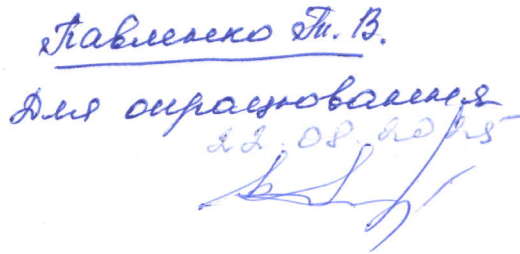 Павленко Т. В.
Для опрацювання
22.08.2025